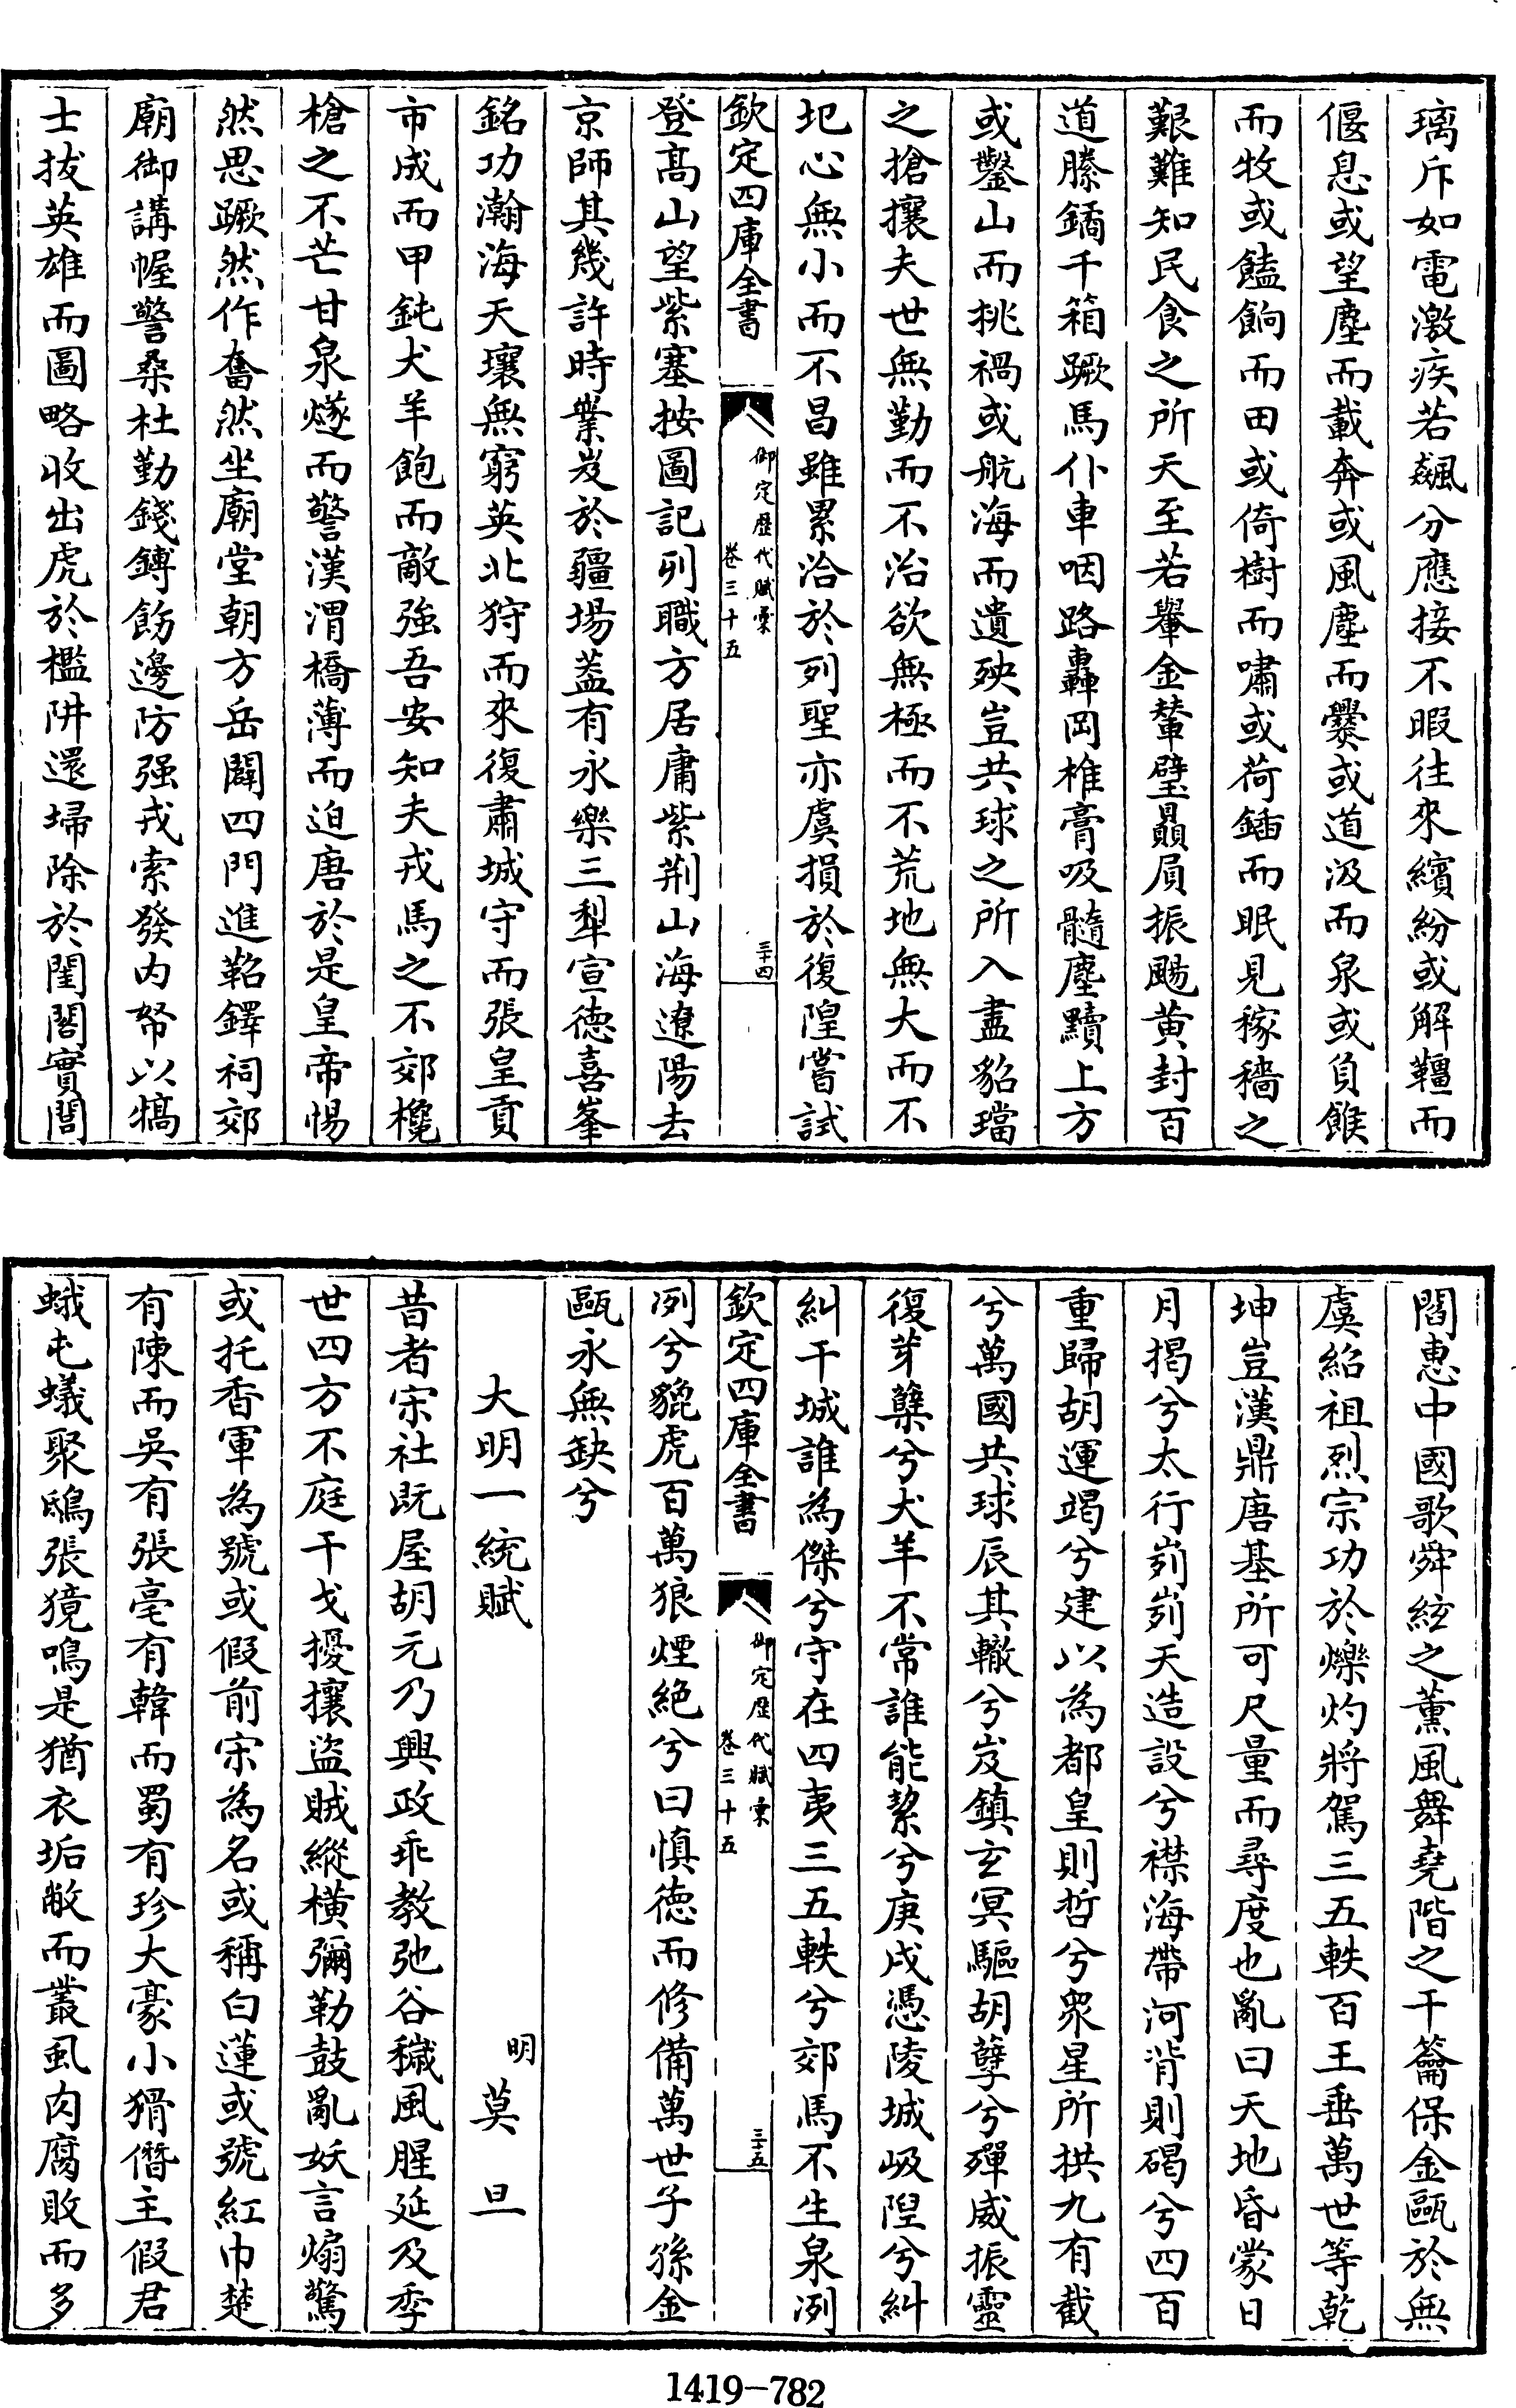 璃斥如電激疾若飆分應接不暇往來繽紛或解韁而
偃息或望塵而載奔或風塵而爨或道汲而泉或負餱
而牧或饁餉而田或倚樹而嘯或荷鍤而眠見稼穡之
艱難知民食之所天至若轝金輦璧贔屓振颺黄封百
道縢鐍千箱蹶馬仆車咽路轟岡椎膏吸髓塵黷上方
或鑿山而挑禍或航海而遺殃豈共球之所入盡貂璫
之搶攘夫世無勤而不治欲無極而不荒地無大而不
圮心無小而不昌雖累洽於列聖亦虞損於復隍嘗試
欽定四庫全書
御定歷代賦彙
卷三十五
三十四
登髙山望紫塞按圖記列職方居庸紫荆山海遼陽去
京師其幾許時業岌於疆場葢有永樂三犁宣德喜峯
銘功瀚海天壤無窮英北狩而來復肅城守而張皇貢
市成而甲鈍犬羊飽而敵強吾安知夫戎馬之不郊欃
槍之不芒甘泉燧而警漢渭橋薄而迫唐於是皇帝惕
然思蹶然作奮然坐廟堂朝方岳闢四門進鞀鐸祠郊
廟御講幄警桑杜勤錢鎛飭邊防强戎索發内帑以犒
士拔英雄而圖略收出虎於檻阱還埽除於閨閤實閭
閻惠中國歌舜絃之薰風舞堯階之干籥保金甌於無
虞紹祖烈宗功於爍灼將駕三五軼百王垂萬世等乾
坤豈漢鼎唐基所可尺量而尋度也亂曰天地昏蒙日
月揭兮太行峛峛天造設兮襟海帶河背則碣兮四百
重歸胡運竭兮建以為都皇則哲兮衆星所拱九有截
兮萬國共球辰其轍兮岌鎮玄冥驅胡孽兮殫威振靈
復芽櫱兮犬羊不常誰能挈兮庚戌憑陵城岋隉兮糾
糾干城誰為傑兮守在四夷三五軼兮郊馬不生泉冽
欽定四庫全書
御定歷代賦彙
卷三十五
三十五
冽兮貔虎百萬狼煙絶兮曰慎德而修備萬世子孫金
甌永無缺兮
大明一統賦
明莫旦
昔者宋社既屋胡元乃興政乖教弛谷穢風腥延及季
世四方不庭干戈擾攘盜賊縱橫彌勒鼓亂妖言煽驚
或托香軍為號或假前宋為名或稱白蓮或號紅巾楚
有陳而吳有張亳有韓而蜀有珍大豪小猾僭主假君
蛾屯蟻聚鴟張獍鳴是猶衣垢敝而叢虱肉腐敗而多
1419-782